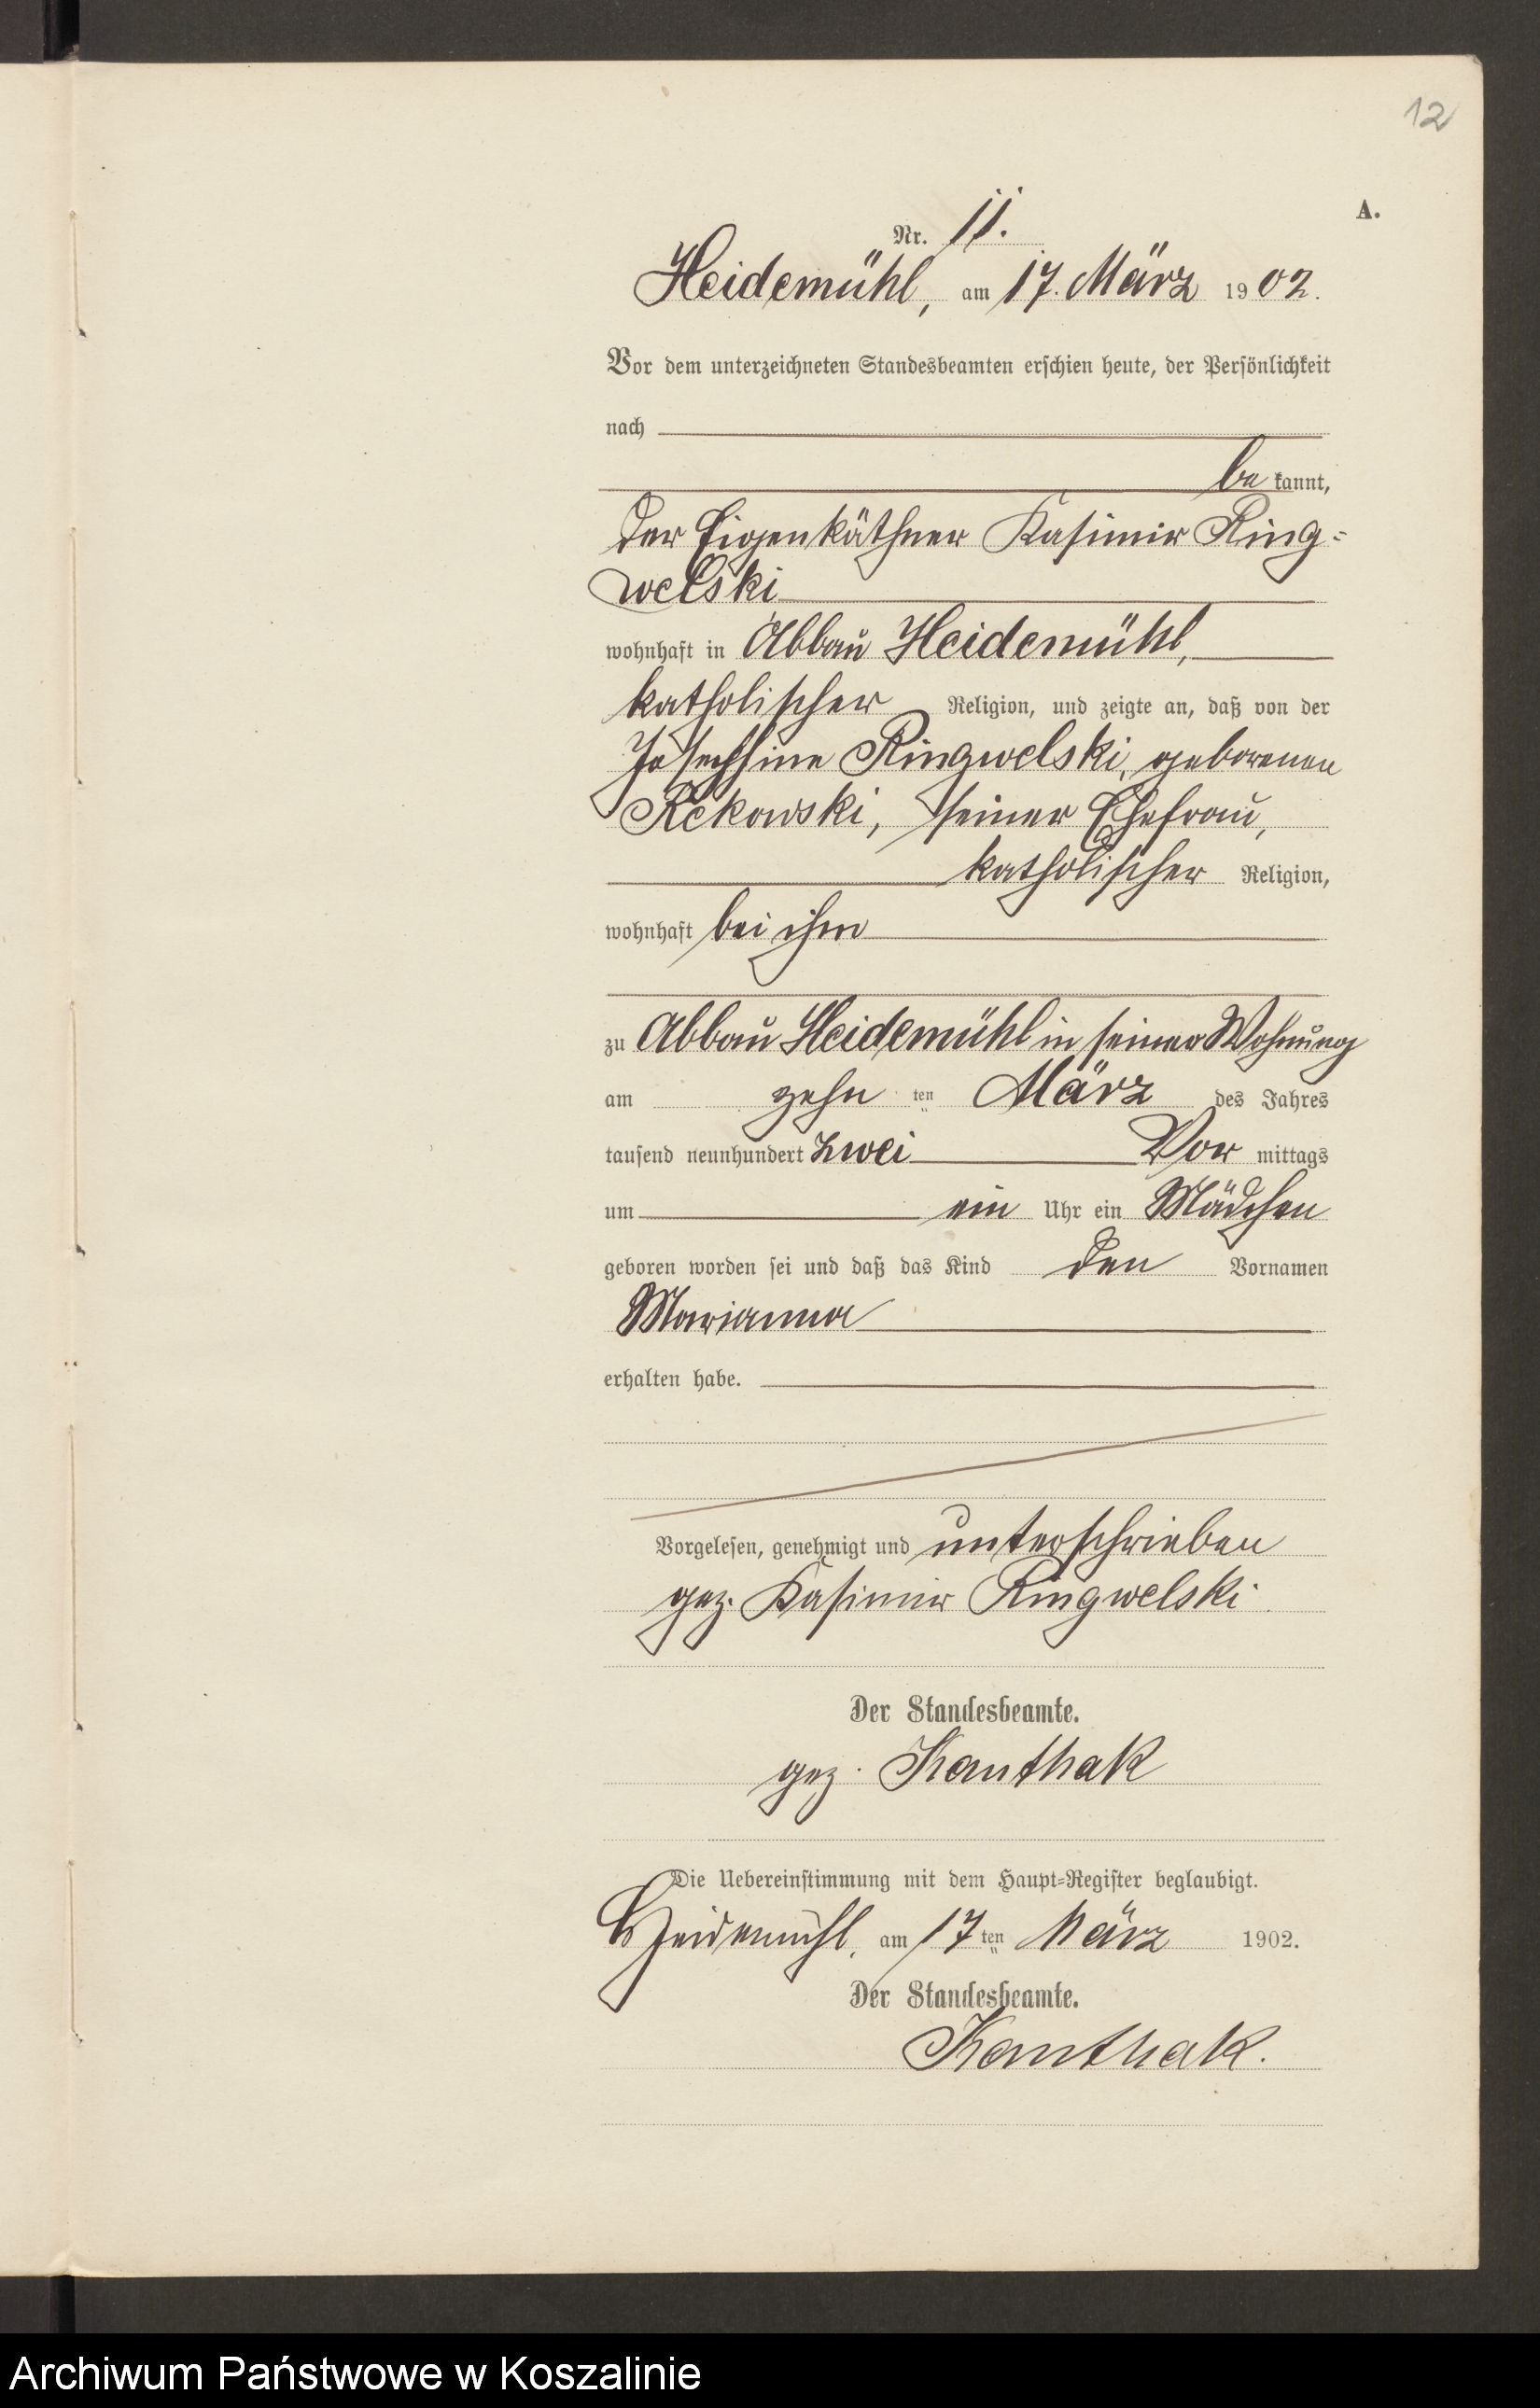 12
A.
Nr. 11.
Heidemühl, am 17. März 1902.
Vor dem unterzeichneten Standesbeamten erschien heute, der Persönlichkeit
nach
be kannt,
der Eigenkäthner Kasimir Ring=
welski
wohnhaft in Abbau Heidemühl,
katholischer Religion, und zeigte an, daß von der
Josephine Ringwelski, geborenen
Rekowski, seiner Ehefrau,
katholischer Religion,
wohnhaft bei ihm
zu Abbau Heidemühl in seiner Wohnung
am zehn ten März des Jahres
tausend neunhundert zwei Vor mittags
um ein Uhr ein Mädchen
geboren worden sei und daß das Kind den Vornamen
Marianna
erhalten habe.
Vorgelesen, genehmigt und unterschrieben
gez. Kasimir Ringwelski
Der Standesbeamte.
gez. Kanthak
Die Uebereinstimmung mit dem Haupt=Register beglaubigt.
Heidemühl, am 17 ten März 1902.
Der Standesbeamte.
Kanthak.
Archiwum Państwowe w Koszalinie